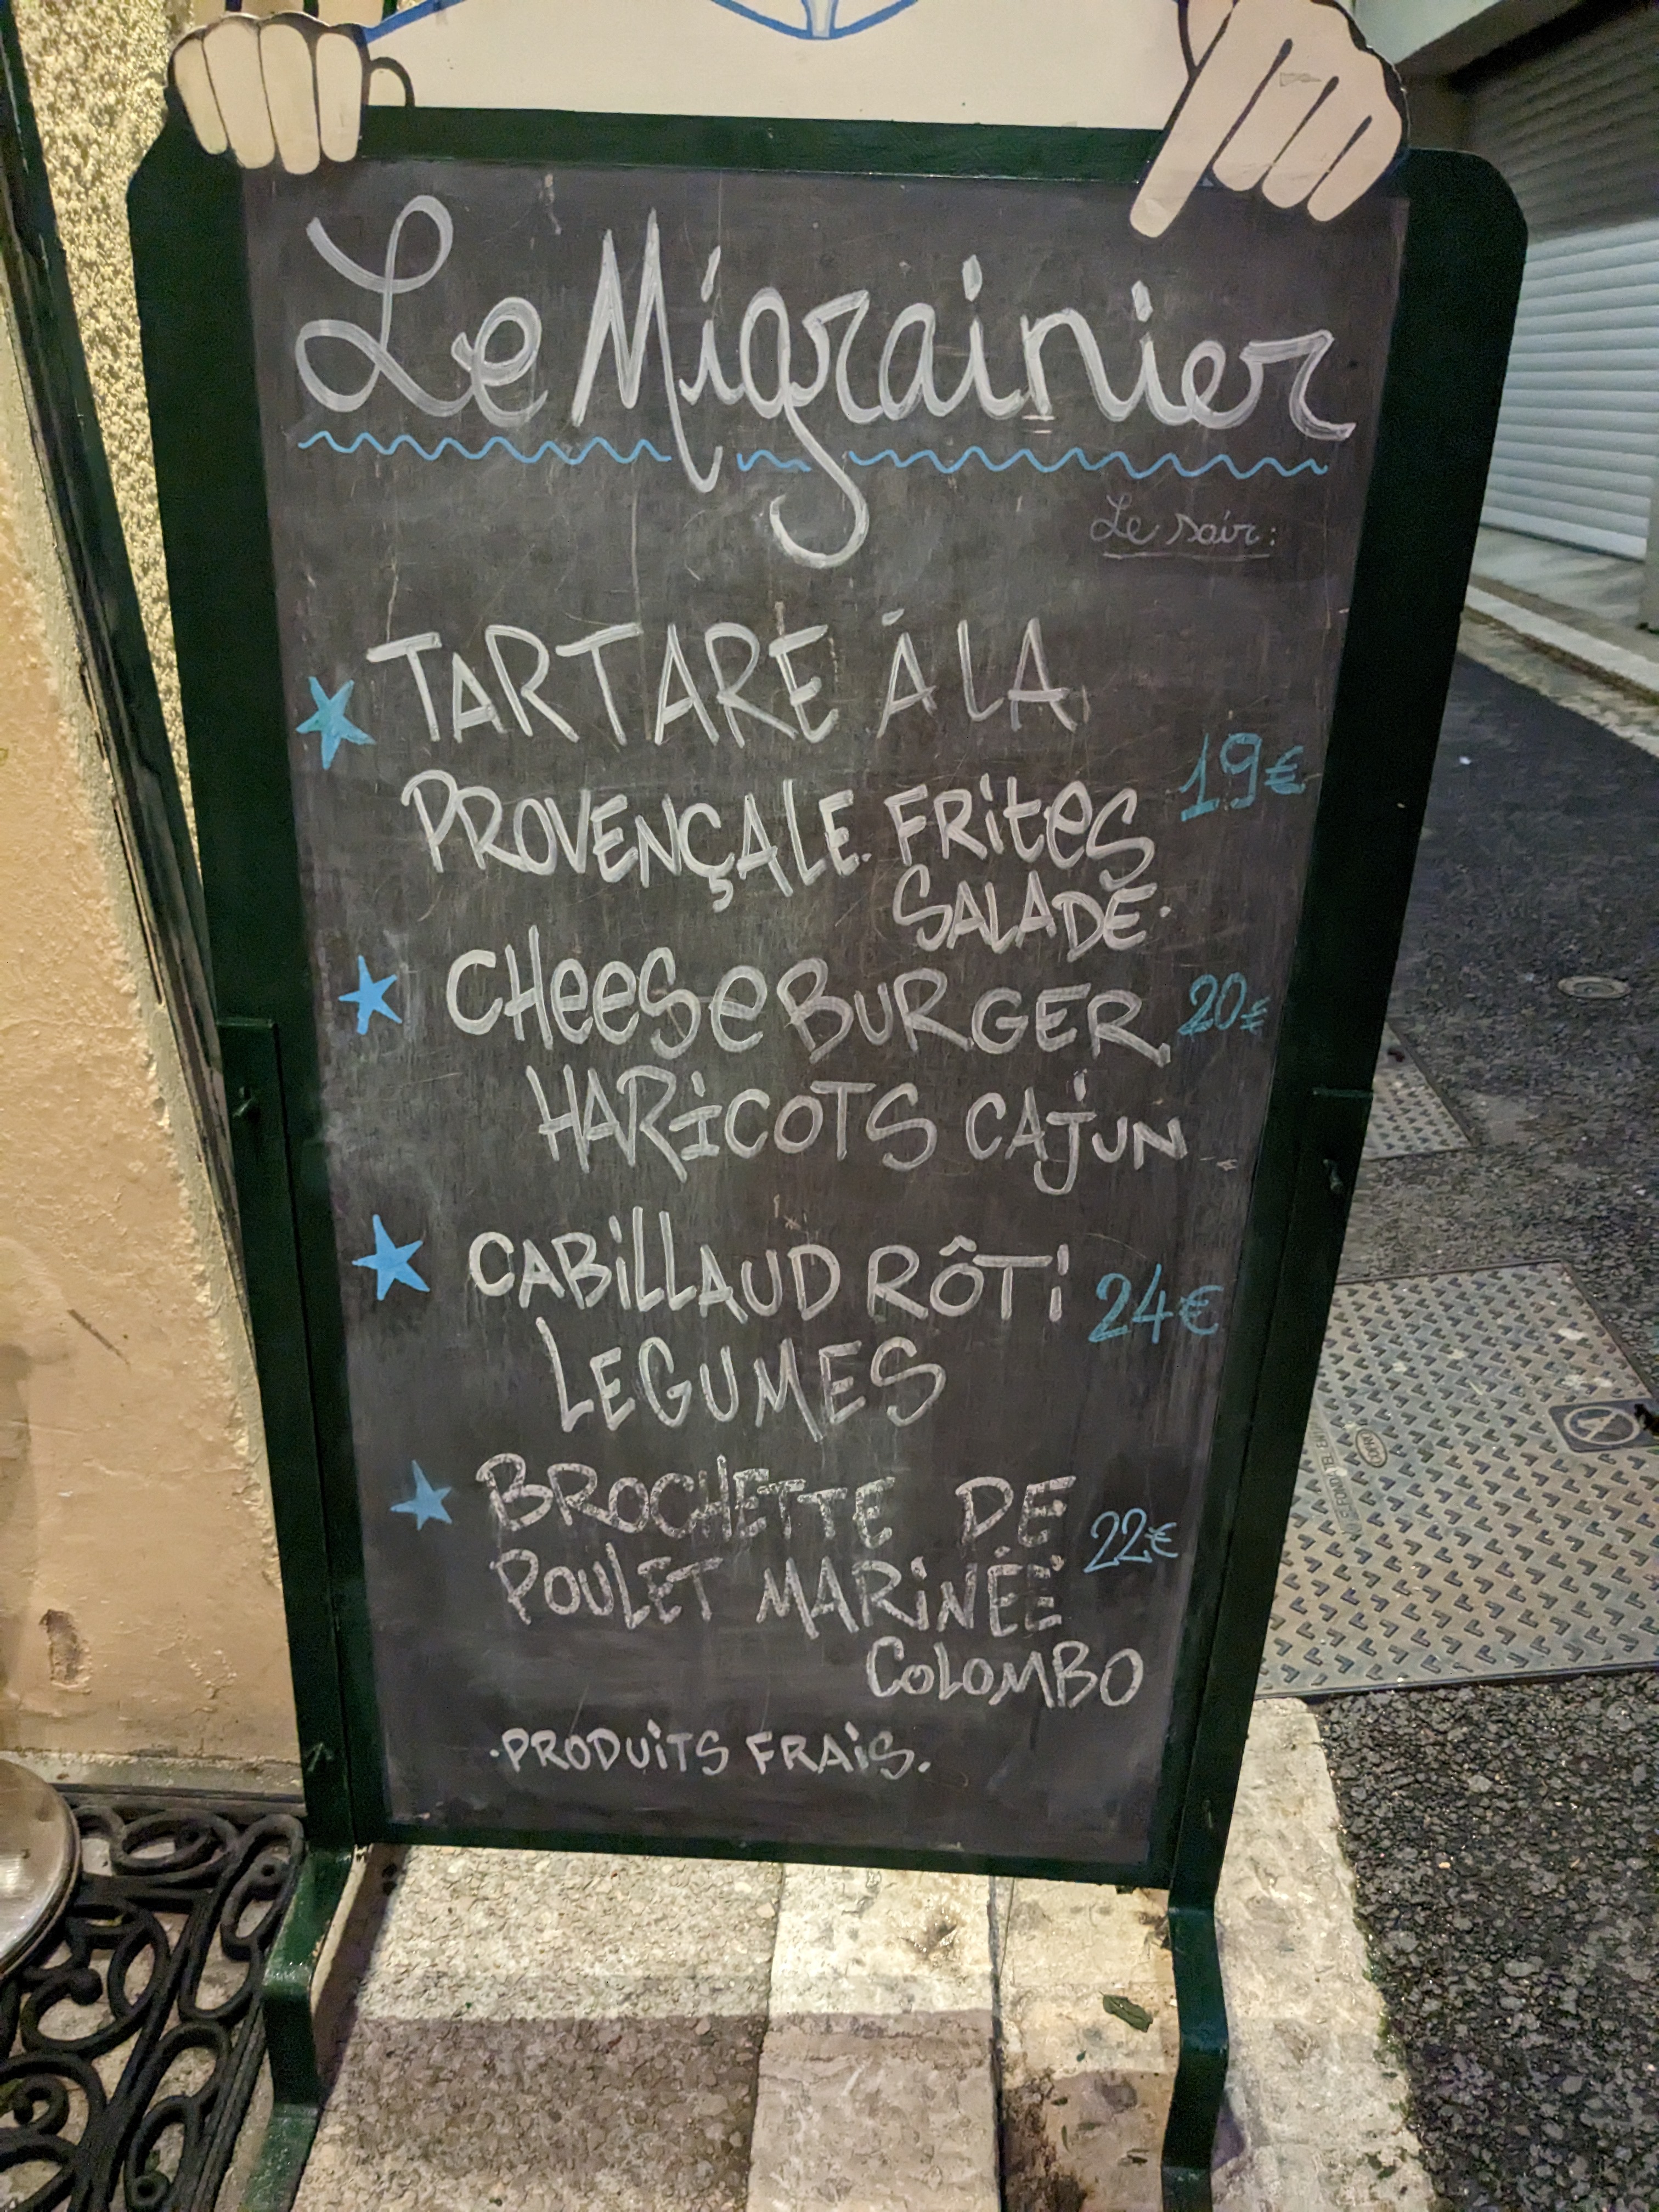 Le Migrainier
Le soir:
TARTARE À LA
PROVENÇALE. FRitES
SALADE.
19€
CHeeSe BURGER
20€
HARiCOTS CAJUN
CABiLLAUD RÔTi
24€
LEGUMES
BROCHETTE DE
22€
POULET MARiNÉE
COLOMBO
.PRODUiTS FRAiS.